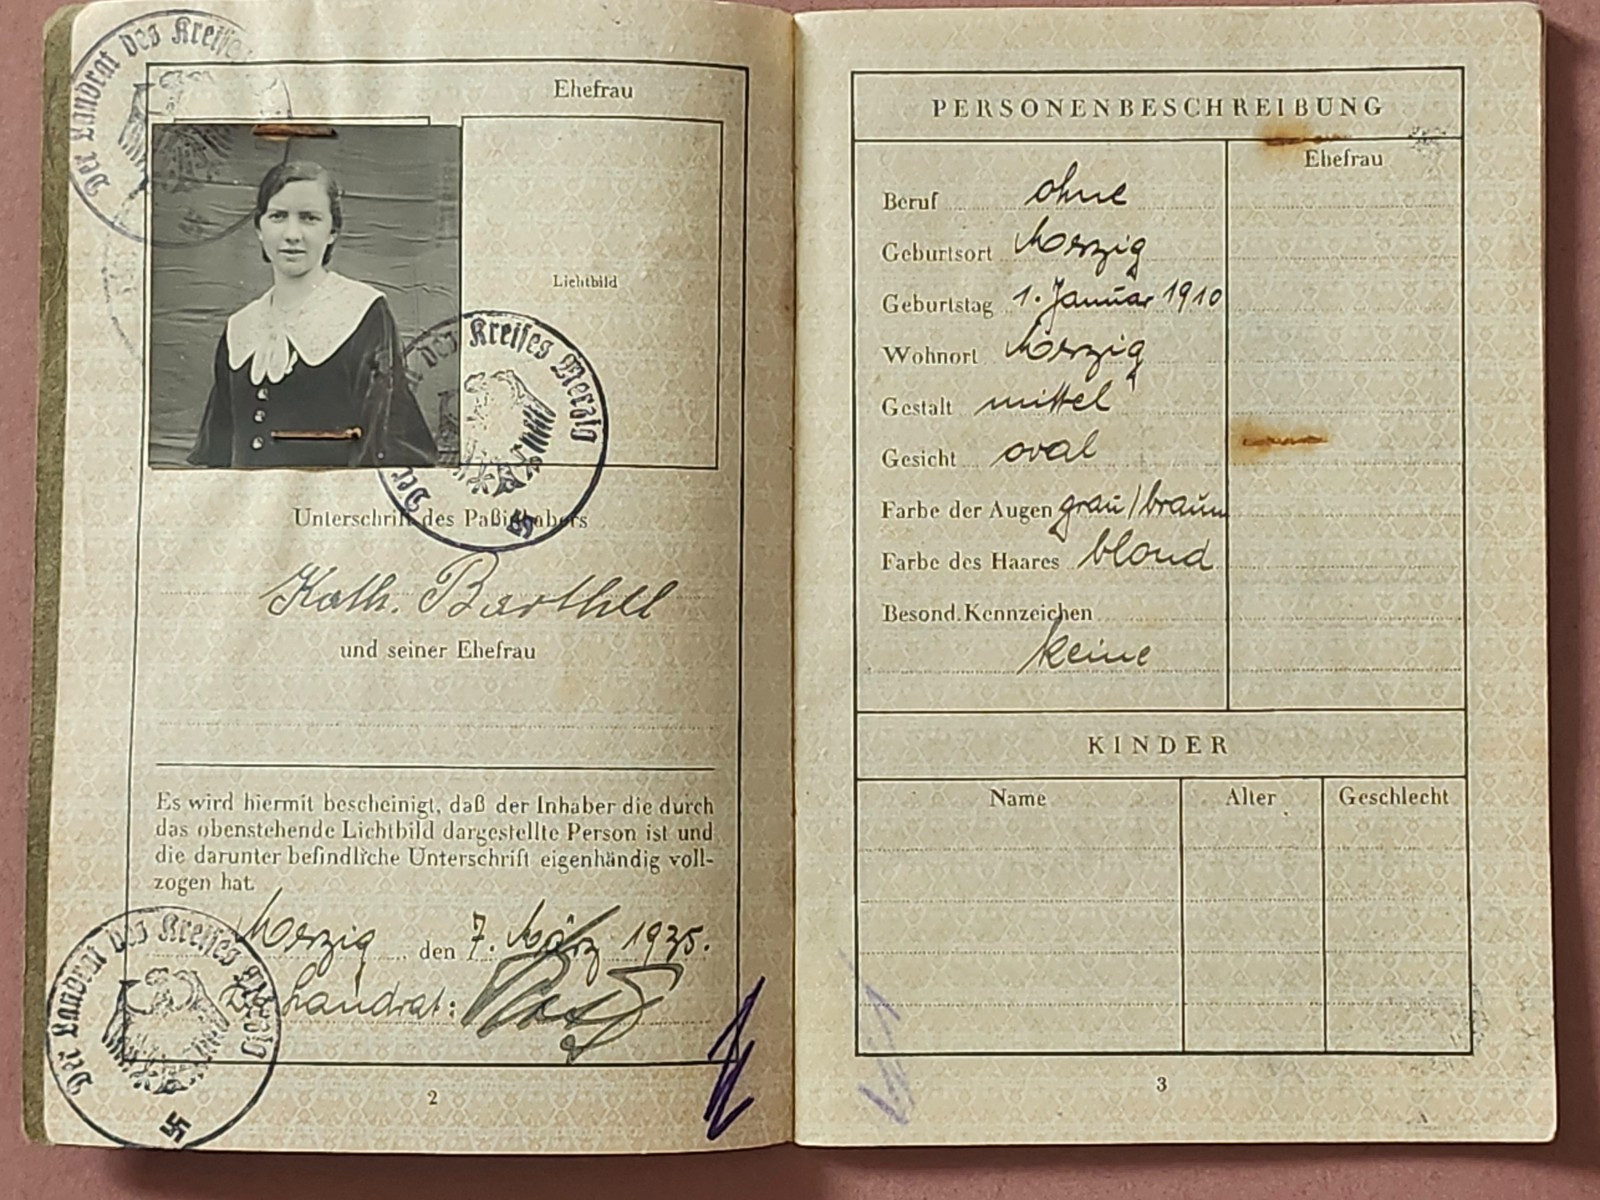 Der Landrat des Kreises
Ehefrau
Lichtbild
Der Landrat des Kreises Merzig
Unterschrift des Paßinhabers
Kath. Barthel
und seiner Ehefrau
Es wird hiermit bescheinigt, daß der Inhaber die durch
das obenstehende Lichtbild dargestellte Person ist und
die darunter befindliche Unterschrift eigenhändig voll-
zogen hat.
Merzig, den 7. März 1935.
Der Landrat:
Der Landrat des Kreises Merzig
2
PERSONENBESCHREIBUNG
Ehefrau
Beruf ohne
Geburtsort Merzig
Geburtstag 1. Januar 1910
Wohnort Merzig
Gestalt mittel
Gesicht oval
Farbe der Augen grau/braun
Farbe des Haares blond
Besond. Kennzeichen
keine
KINDER
Name Alter Geschlecht
3